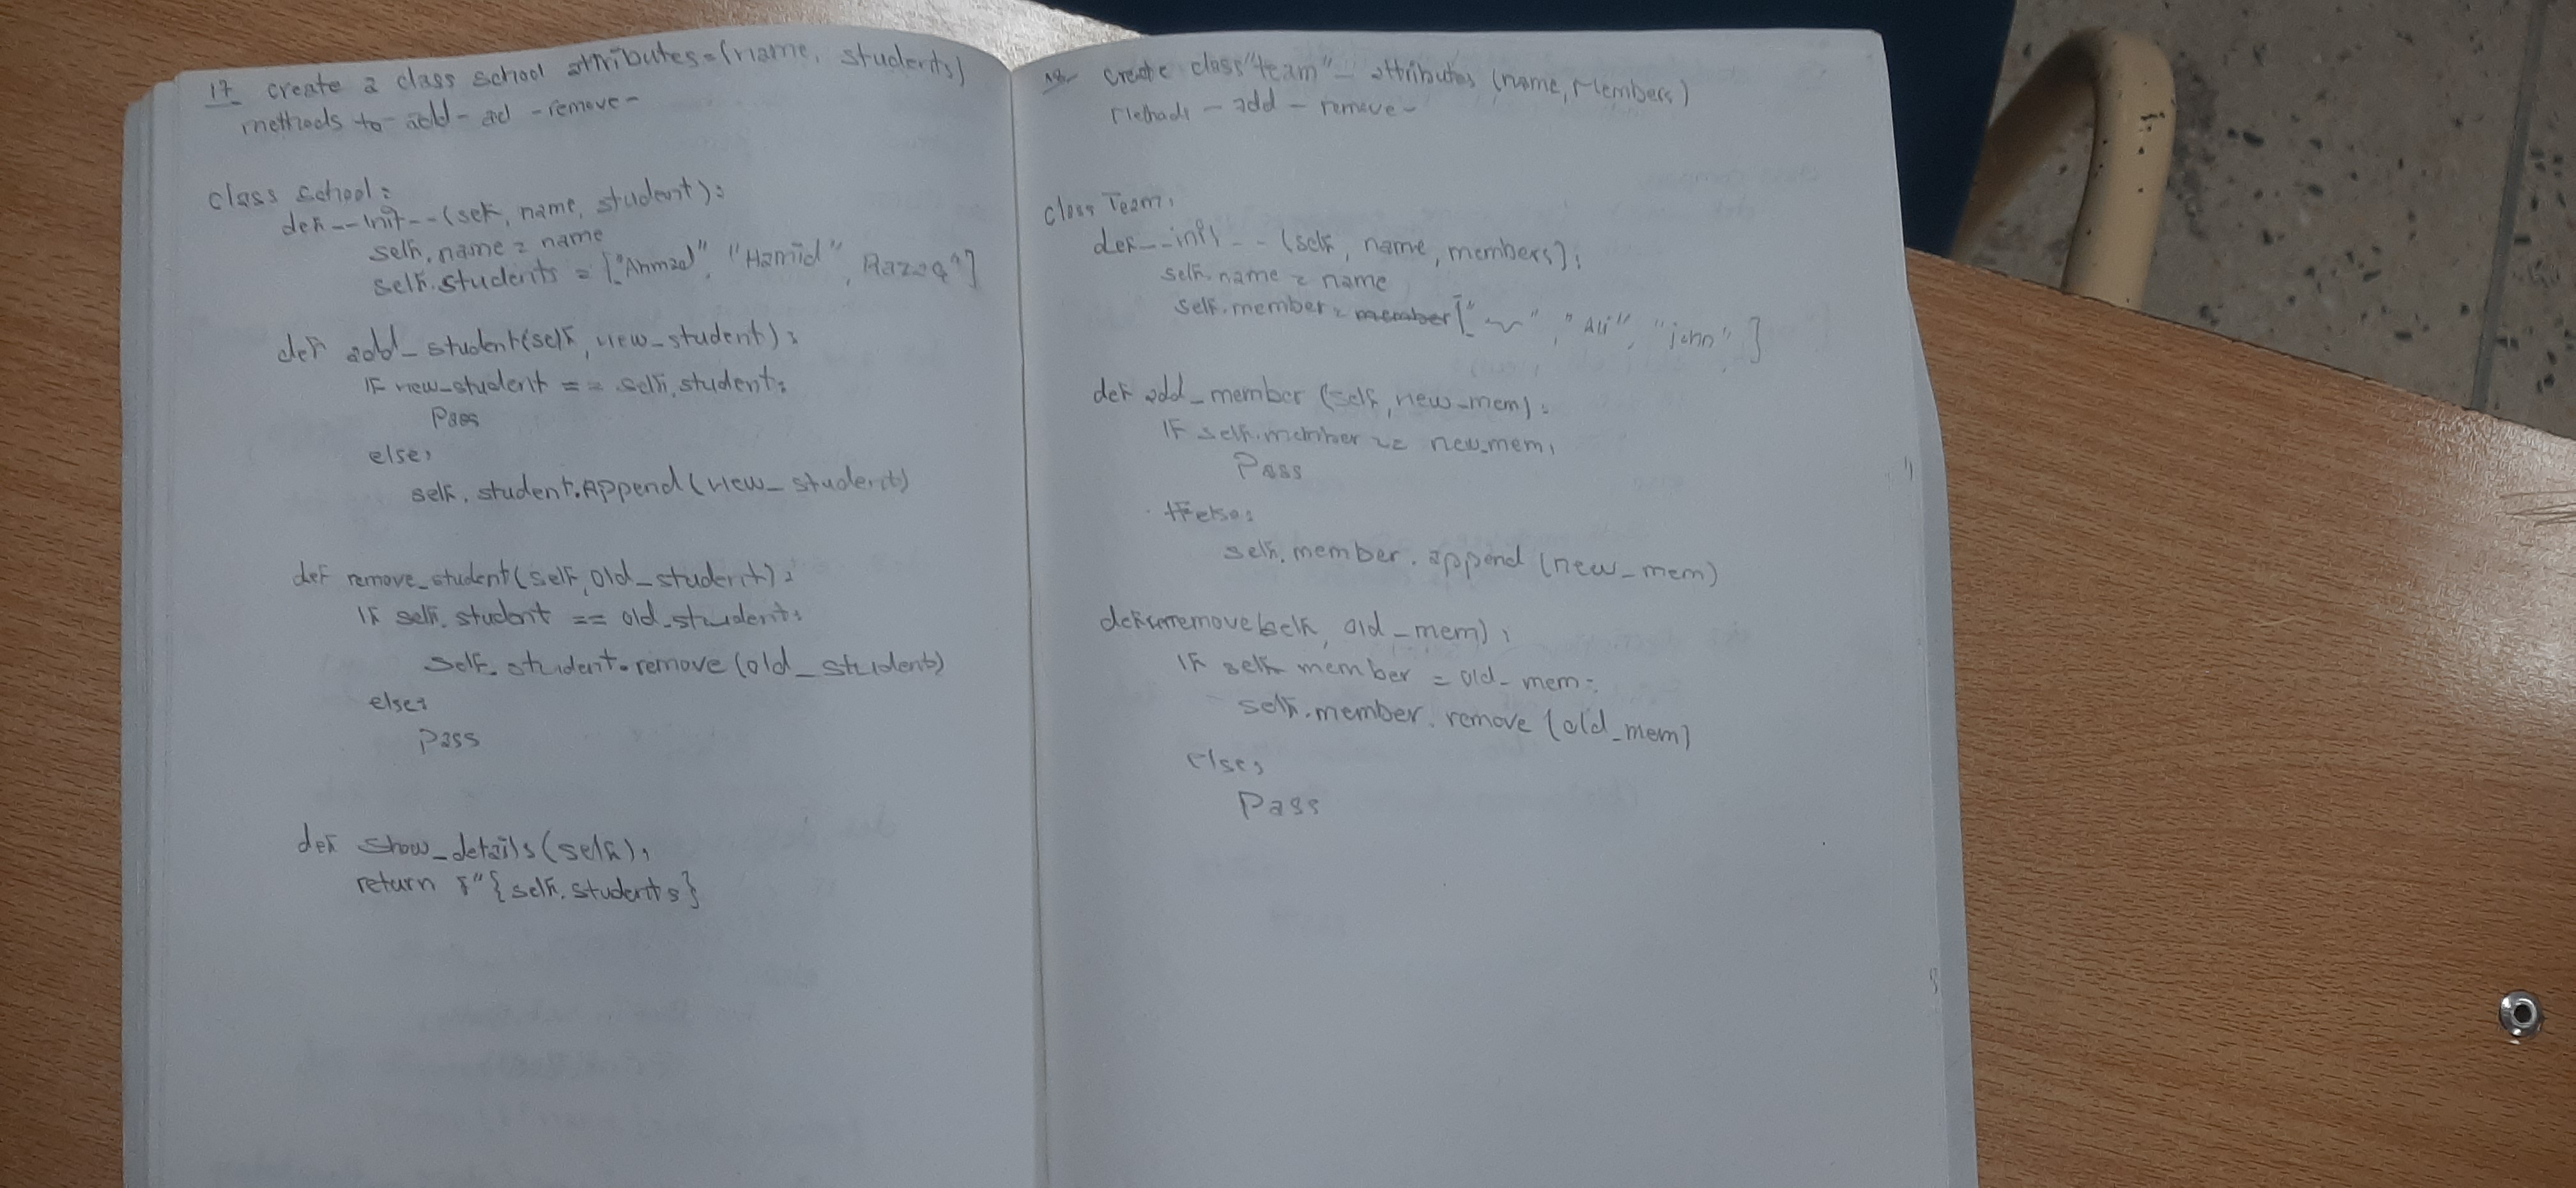 17- create a class school attributes=(name, students)
methods to - add - ad - remove -
class school:
def __init__(self, name, student):
self.name = name
self.students = ["Ahmad", "Hamid", Razaq"]
def add_student(self, new_student):
if new_student == self.student:
pass
else:
self.student.Append(new_student)
def remove_student(self, old_student):
if self.student == old_student:
self.student.remove(old_student)
else:
pass
def show_details(self):
return f"{self.students}
18- create class "team" - attributes (name, Members)
Methods - add - remove -
class Team:
def __init__(self, name, members):
self.name = name
self.member = ["", "Ali", "john",]
def add_member(self, new_mem):
if self.member == new_mem:
pass
else:
self.member.append(new_mem)
def remove(self, old_mem):
if self.member = old_mem:
self.member.remove(old_mem)
else:
pass